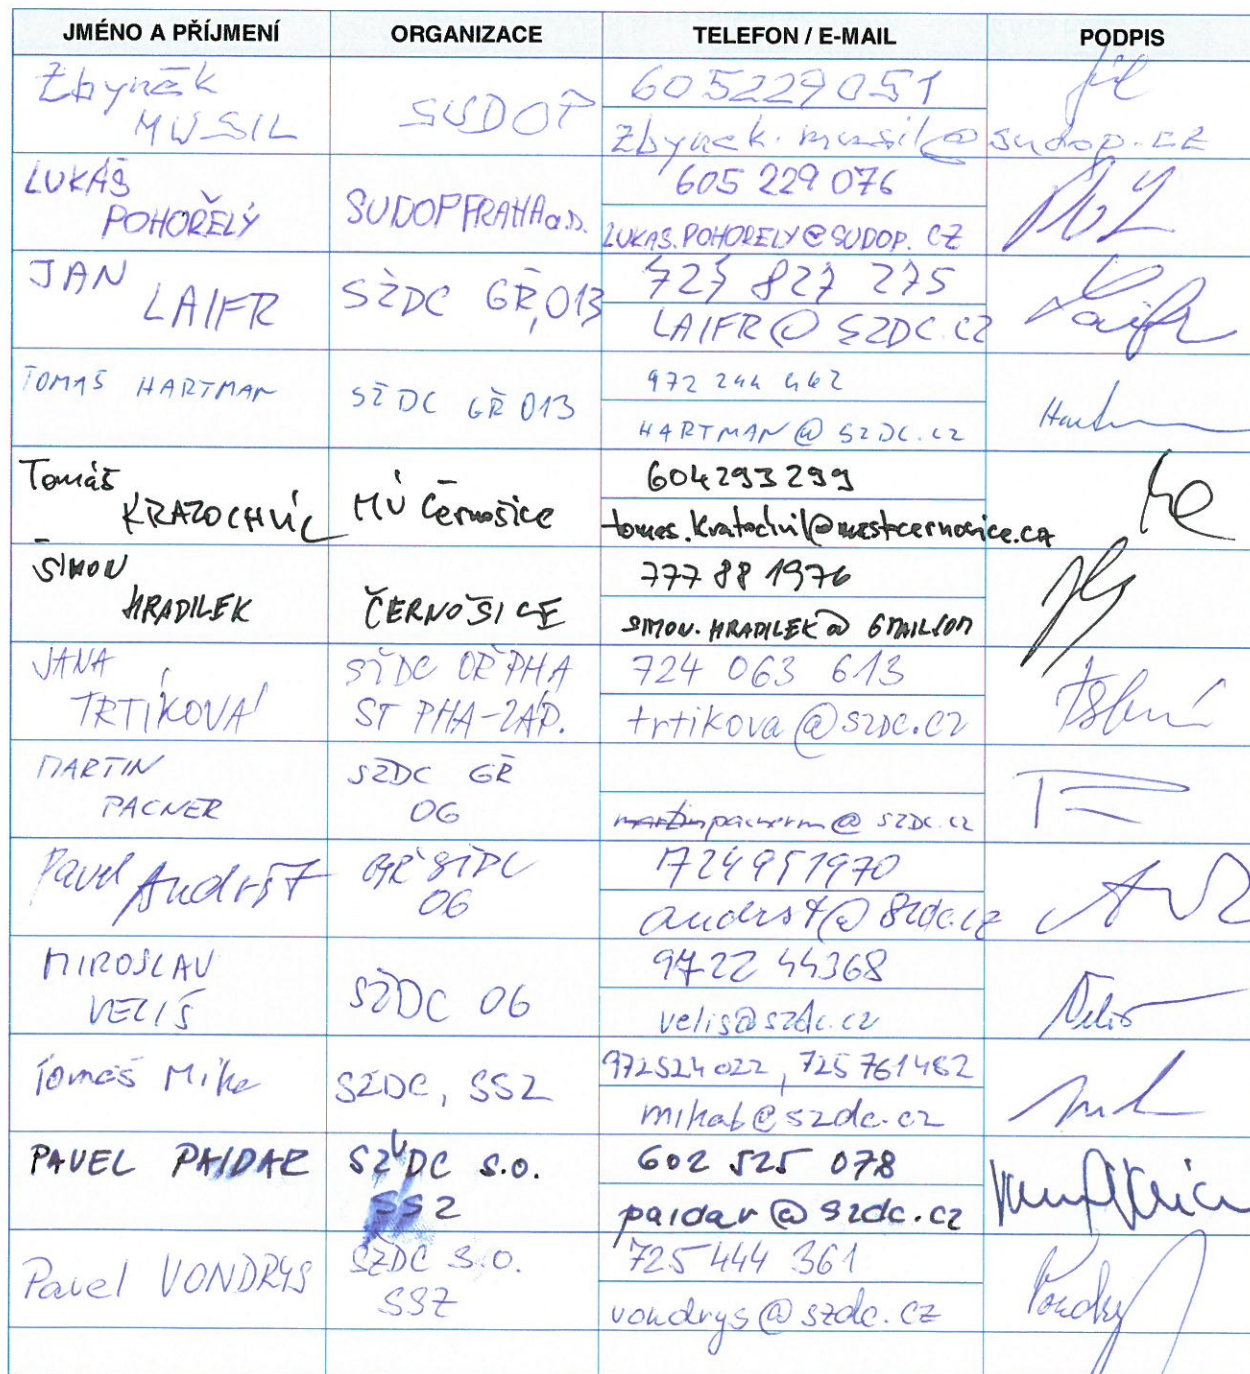 JMÉNO A PŘÍJMENÍ ORGANIZACE TELEFON / E-MAIL PODPIS
Zbyněk MUSIL SUDOP 605229051
zbynek.musil@sudop.cz
LUKÁŠ POHOŘELÝ SUDOP PRAHA a.s. 605 229 076
LUKAS.POHORELY@SUDOP.CZ
JAN LAIFR SŽDC GŘ, 013 725 827 275
LAIFR@SZDC.CZ Laifr
TOMÁŠ HARTMAN SŽDC GŘ 013 972 244 462
HARTMAN@SZDC.CZ
Tomáš KRATOCHVÍL MÚ Černošice 604293299
tomas.kratochvil@mestocernosice.cz
ŠIMON HRADILEK ČERNOŠICE 777 88 1976
SIMON.HRADILEK@GMAIL.COM
JANA TRTÍKOVÁ SŽDC OŘ PHA 724 063 613
ST PHA-ZÁP. trtikova@szdc.cz
MARTIN PACNER SŽDC GŘ
06 pacnerm@szdc.cz
Pavel Andršt GŘ SŽDC 724951970
06 andrst@szdc.cz
MIROSLAV VELIŠ SŽDC 06 9722 44368
velis@szdc.cz Veliš
Tomáš Mika SŽDC, SSZ 972524022, 725761482
SŽDC s.o. 602 525 078
PAVEL PAIDAR SSZ paidar@szdc.cz
Pavel VONDRYS SŽDC s.o. 725 444 361
SSZ vondrys@szdc.cz